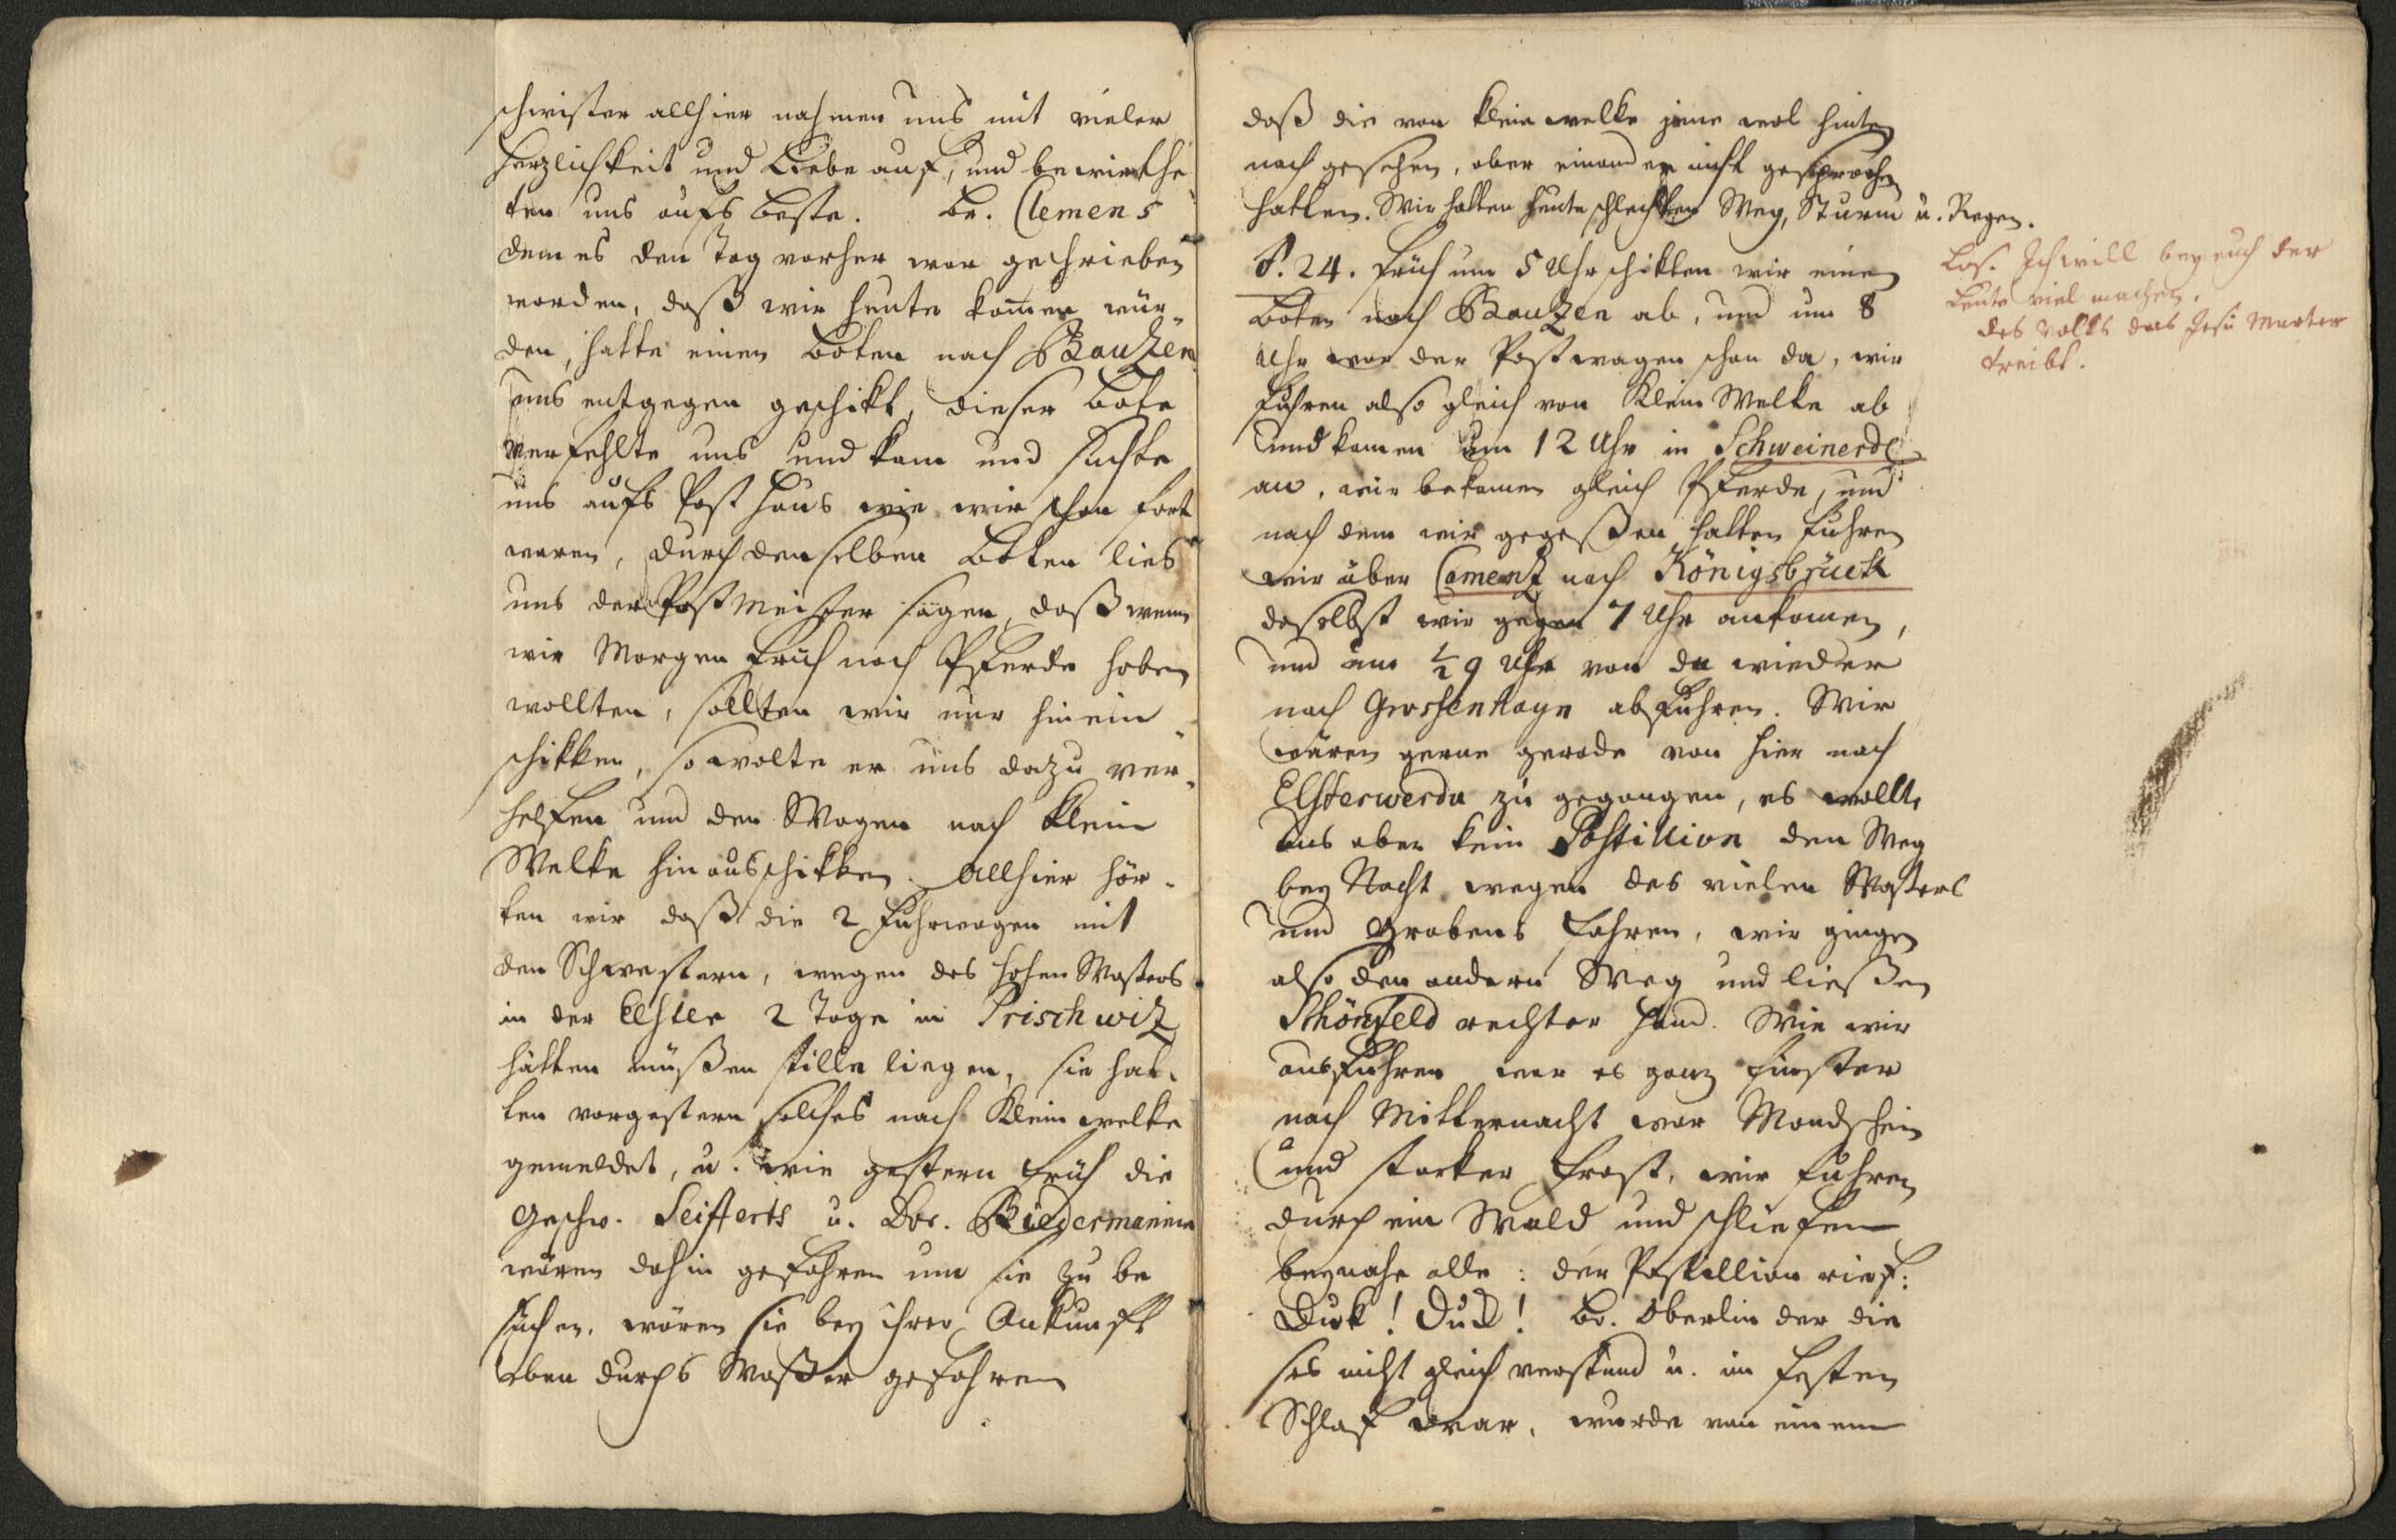 schwister allhier nahmen uns mit vieler
Herzlichkeit und Liebe auf, und bewirthe
ten uns aufs beste. Br. Clemens
dem es den Tag vorher war geschrieben
worden, daß wir heute komen wür-
den, hatte einen Boten nach Bautzen
uns entgegen geschikt, dieser Bote
verfehlte uns und kam und suchte
uns aufs Post Haus wie wir schon fort
waren, durch denselben Boten lies
uns der Post Meister sagen, daß wenn
wir Morgen früh noch Pferde haben
wollten, sollten wir nur hinein
schikken, so wolte er uns dazu ver-
helfen und den Wagen nach Klein
Welke hinausschikken. Allhier hör-
ten wir daß die 2 Fuhrwagen mit
den Schwestern, wegen des hohen Wassers
in der Elster 2 Tage in Prischwitz
hätten müßen stille liegen, sie hat-
ten vorgestern solches nach Klein welke
gemeldet, u. wie gestern früh die
Geschw. Seifferts u. Br. Biedermann
wären dahin gefahren um sie zu be
suchen, wären sie bey ihrer Ankunft
eben durchs Waßer gefahren
daß die von Kleinwelke jene wol hinten
nach gesehen, aber einander nicht gesprochen
hatten. Wir hatten heute schlechten Weg, Sturm u. Regen.
d. 24. früh um 5 Uhr schikten wir einen
Boten nach Bautzen ab, und um 8
Uhr war der Postwagen schon da, wir
fuhren also gleich von Klein Welke ab
und kamen um 12 Uhr in Schweinerde
an, wir bekamen gleich Pferde, und
nach dem wir gegeßen hatten fuhren
wir über Camentz nach Königsbrück
daselbst wir gegen 7 Uhr ankamen,
und um ½ 9 Uhr von da wieder
nach Grossenhayn abfuhren. Wir
wären gerne gerade von hier nach
Elsterwerda zu gegangen, es wollte
uns aber kein Postillion den Weg
bey Nacht wegen des vielen Wassers
und Grabens fahren, wir gingen
also den andern Weg und ließen
Schönfeld rechter Hand. Wie wir
ausfuhren war es ganz finster
nach Mitternacht war Mondschein
und starker Frost, wir fuhren
durch ein Wald und schliefen
beynahe alle: der Postillion rief:
Duk! Duck! Br. Oberlin der die
ses nicht gleich verstund u. im festen
Schlaf war, wurde von einem
Los. Ich will bey euch der
Leute viel machen,
des Volks das Jesu Marter
treibt.